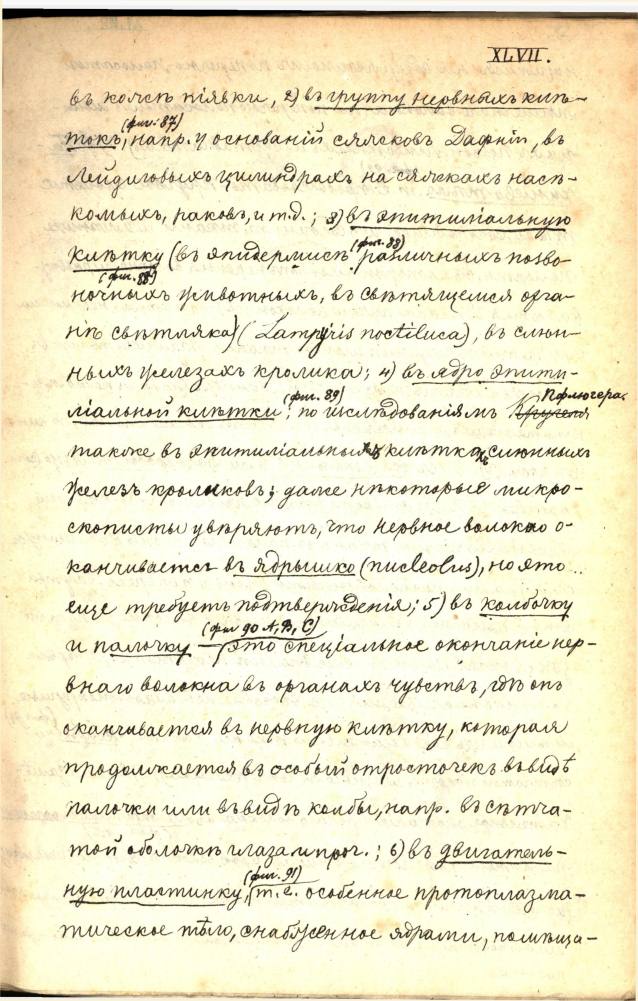 XLVII.
въ кожѣ піявки, 2) въ группу нервныхъ клѣ-
токъ, (фиг. 87) напр. у основаній сяжсковъ Дафніи, въ
Лейдиговыхъ цилиндрахъ на сяжкахъ насѣ-
комыхъ, раковъ, и т.д.; 3) въ эпителіальную
клѣтку (въ эпидермисѣ (фиг. 88) различныхъ позво-
(фиг. 88)
ночныхъ животныхъ, въ свѣтящемся орга-
нѣ свѣтляка) (Lampyris noctiluca), въ слюн-
ныхъ железахъ кролика; 4) въ ядро эпите-
ліальной клѣтки; (фиг. 89) по изслѣдованіямъ Пфлюгера
также въ эпителіальныхъ клѣткахъ слюнныхъ
железъ кроликовъ; даже нѣкоторые микро-
скописты увѣряютъ, что нервное волокно о-
канчивается въ ядрышко (nucleolus), но это
еще требуетъ подтвержденія; 5) въ колбочку
и палочку (фиг 90 А, В, С) — это спеціальное окончаніе нер-
внаго волокна въ органахъ чувствъ, гдѣ онъ
оканчивается въ нервную клѣтку, которая
продолжается въ особый отросточекъ въ видѣ
палочки или въ видѣ колбы, напр. въ сѣтча-
той оболочкѣ глаза и проч.; 6) въ двигатель-
ную пластинку, (фиг. 91) т.е. особенное протоплазма-
тическое тѣло, снабженное ядрами, помѣща-